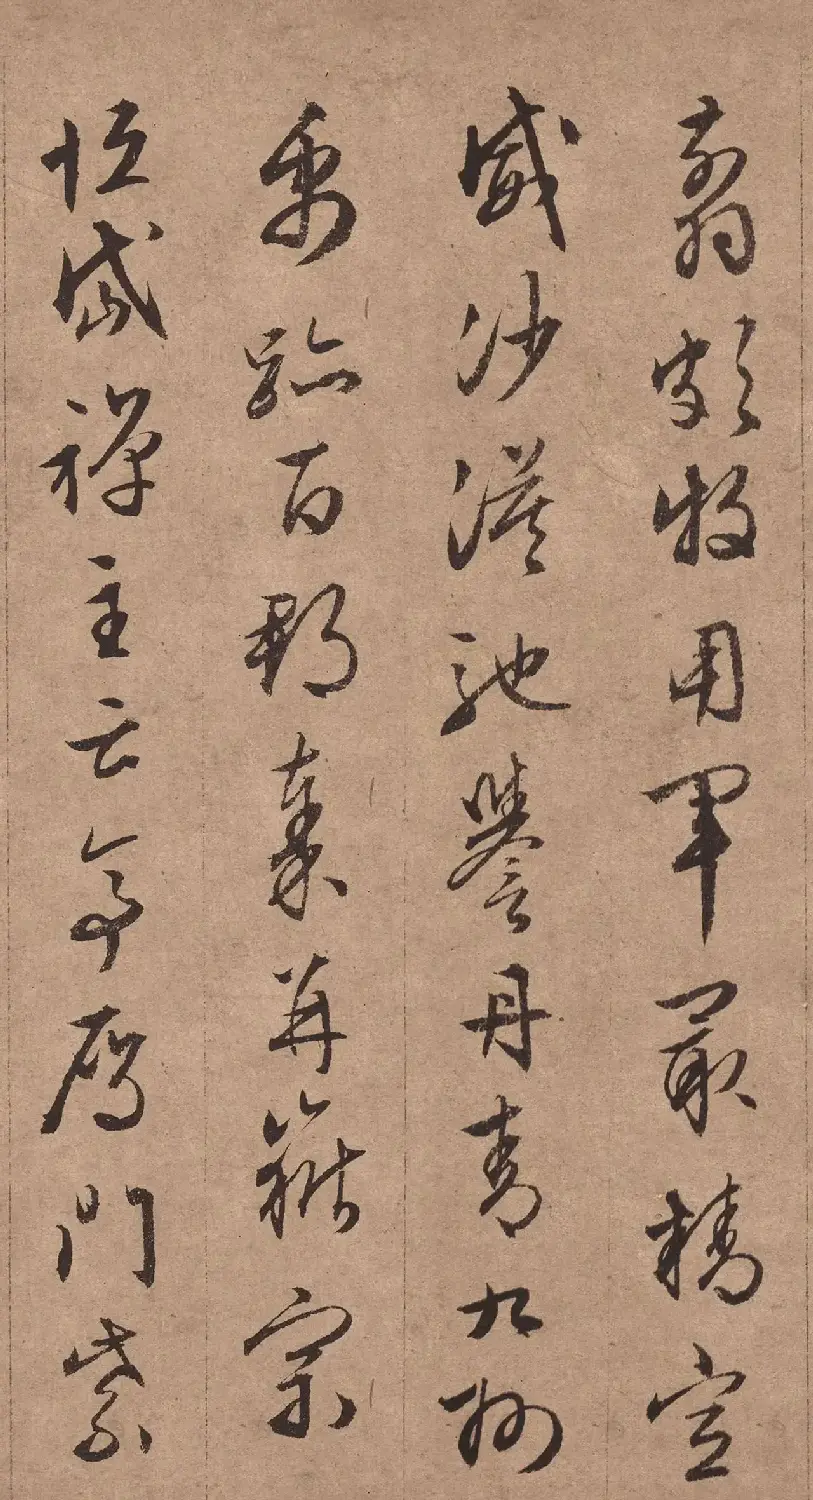 翦頗牧用軍最精宣
威沙漠馳譽丹青九州
禹跡百郡秦并嶽宗
恒岱禪主云亭鴈門紫